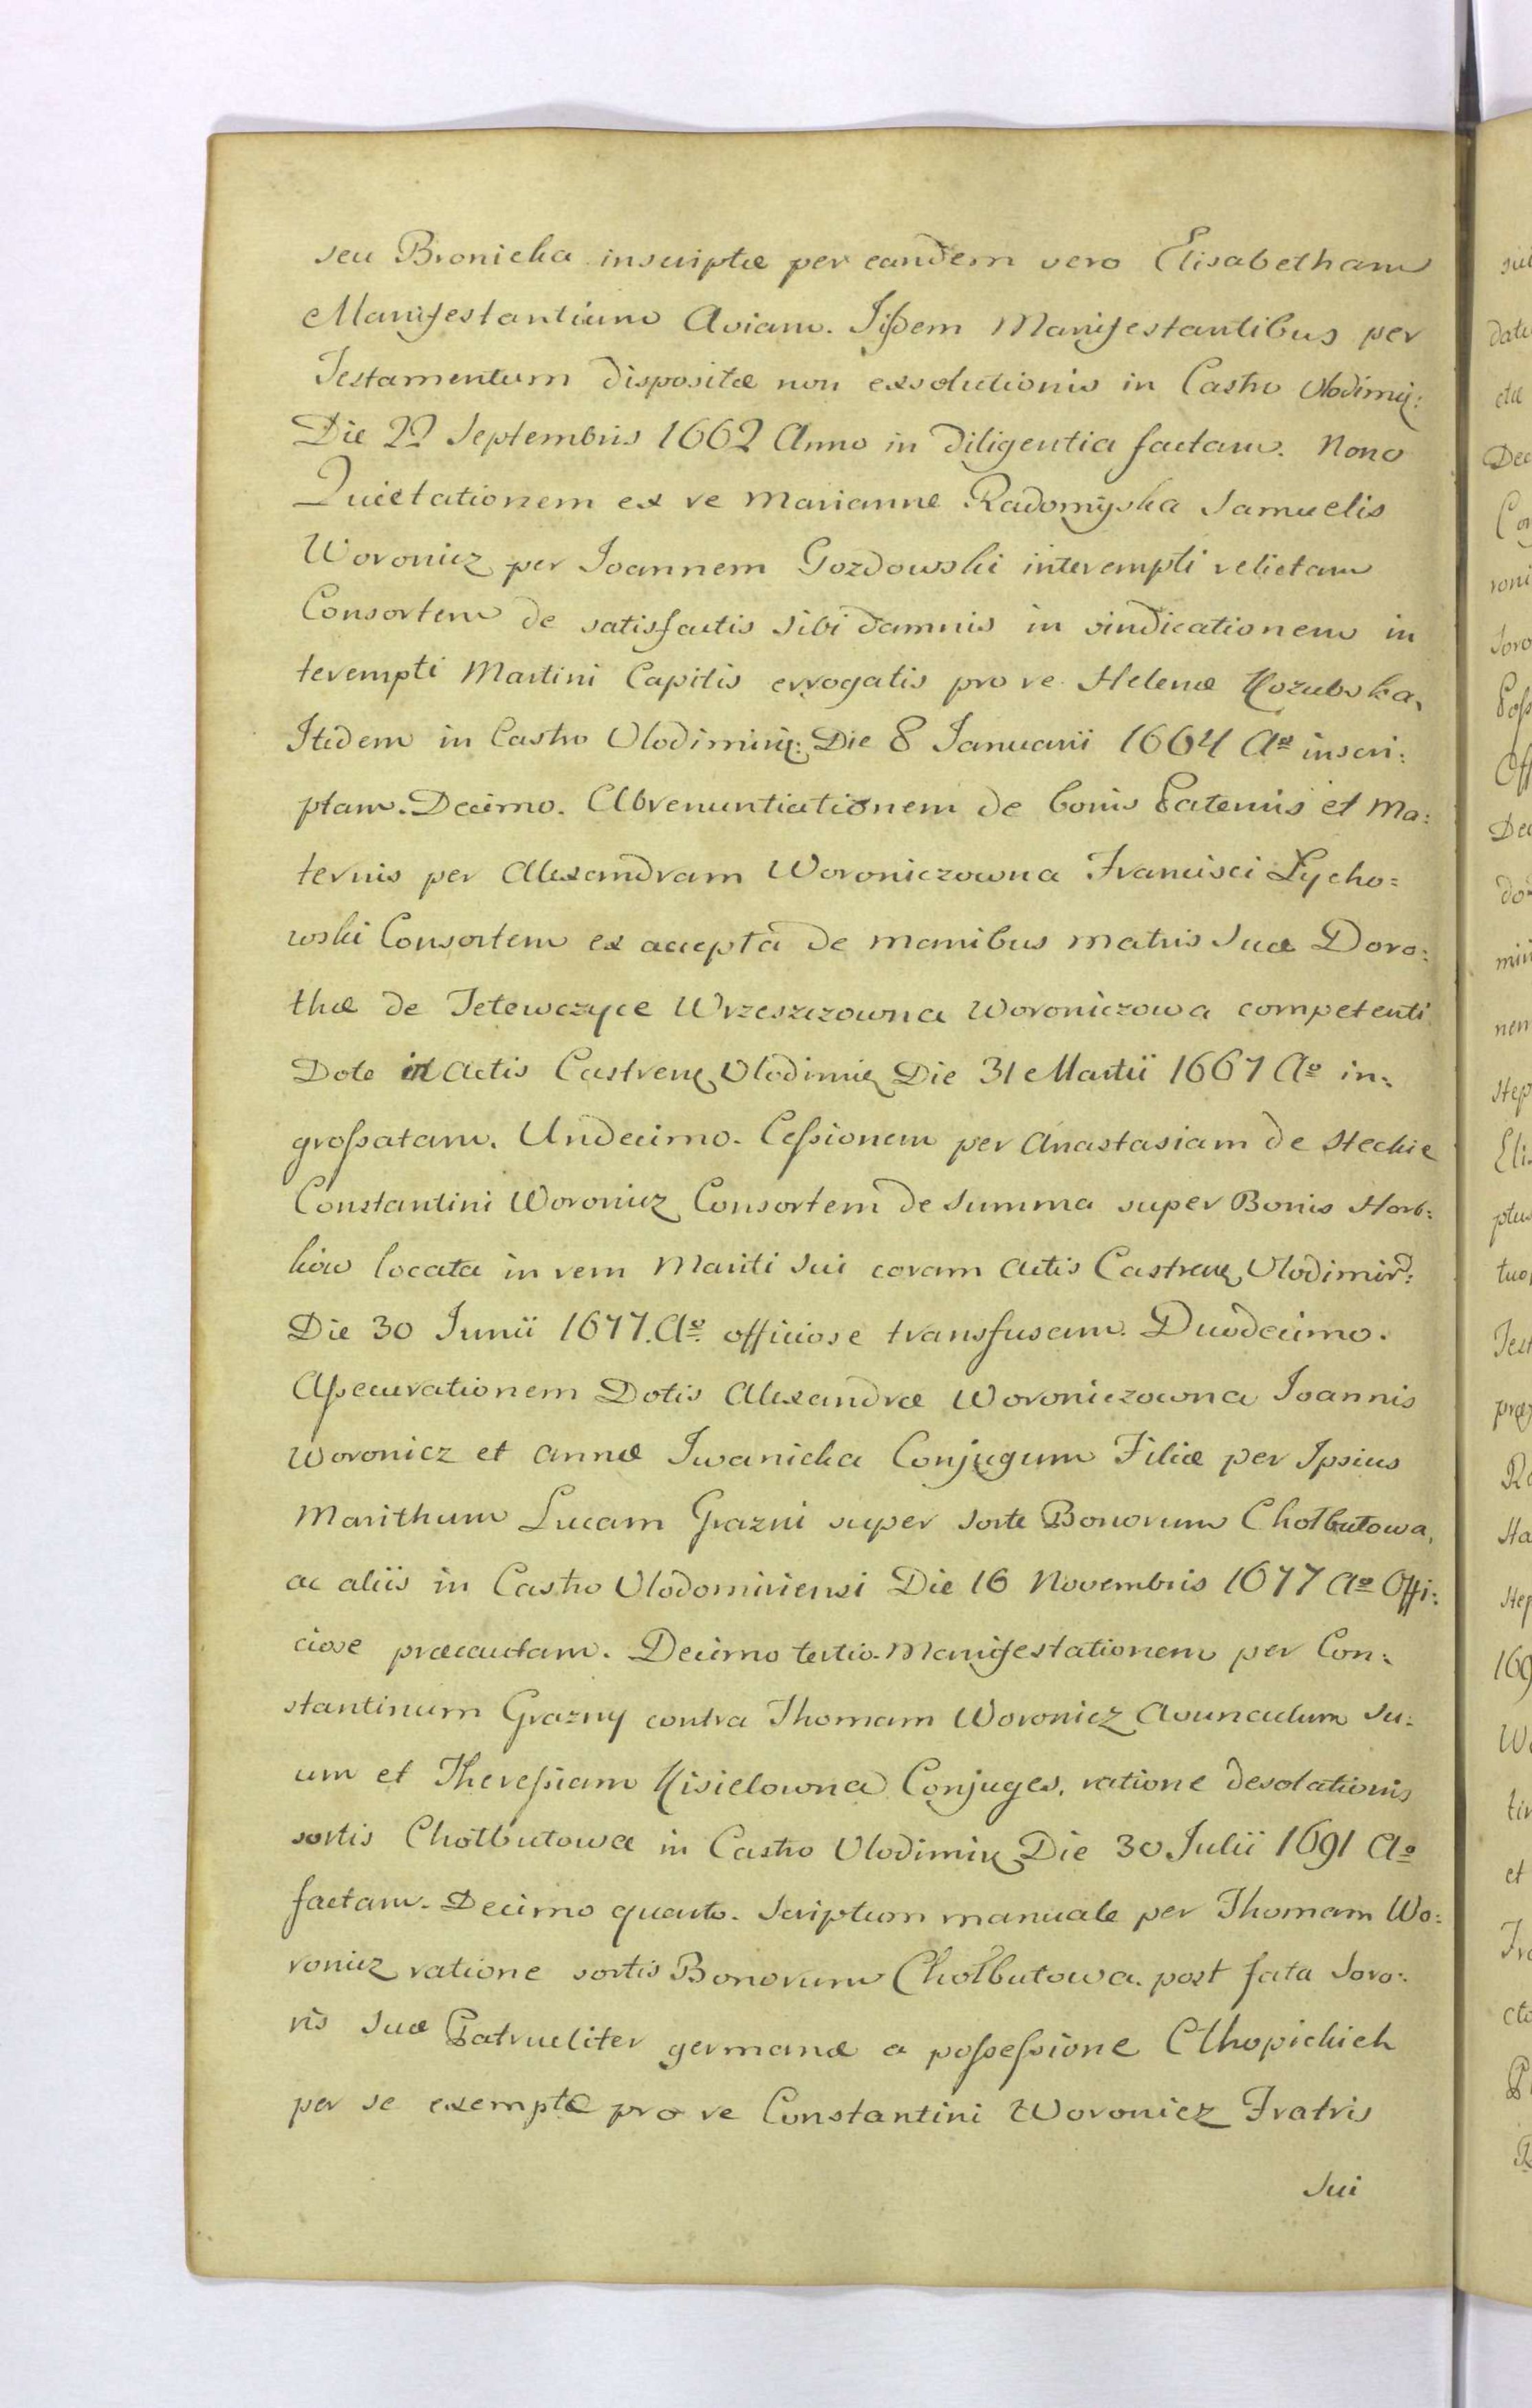 seu Bronicka inscriptæ per eandem vero Elisabetham
Manifestantium Aviam. Iisdem Manifestantibus per
Testamentum dispositæ non exsolutionis in Castro Vlodimir:
Die 22 Septembris 1662 Anno in diligentia factam. Nono
Quietationem ex re Marianne Radomyska Samuelis
Woronicz per Joannem Gozdowski interempti relictam
Consortem de satisfactis sibi damnis in vindicationem in
terempti Martini Capitis errogatis pro re Helenæ Kozubska,
Itidem in Castro Vlodimiri: Die 8 Januarii 1664 Aº inscri:
ptam. Decimo. Abrenuntiationem de bonis Paternis et Ma:
ternis per Alexandram Woroniczowna Francisci Lycho=
wski Consortem ex accepta de manibus matris suæ Doro:
thæ de Tetewczyce Wrzeszczowna Woroniczowa competenti
Dote in Actis Castren Vlodimir Die 31 Martii 1667 Aº in:
grossatam. Undecimo. Cessionem per Anastasiam de Steckie
Constantini Woronicz Consortem de summa super Bonis Horb:
ków locata in rem Mariti sui coram Actis Castren Vlodimir:
Die 30 Junii 1677. Aº officiose transfusam. Duodecimo.
Assecurationem Dotis Alexandræ Woroniczowna Joannis
Woronicz et Annæ Iwanicka Conjugum Filiæ per Ipsius
Marithum Lucam Grazni super sorte Bonorum Chotbutowa,
ac aliis in Castro Vlodomiriensi Die 16 Novembris 1677 Aº Offi:
ciose præcautam. Decimo tertio. Manifestationem per Con:
stantinum Grazny contra Thomam Woronicz Avunculum su:
um et Theressiam Kisielowna Conjuges, ratione desolationis
sortis Chotbutowa in Castro Vlodimir Die 30 Julii 1691 Aº
factam. Decimo quarto. Scriptum manuale per Thomam Wo:
ronicz ratione sortis Bonorum Chotbutowa. post fata Soro:
ris suæ Patrueliter germanæ a possessione Cthopickich
per se exemptæ pro re Constantini Woronicz Fratris
sui